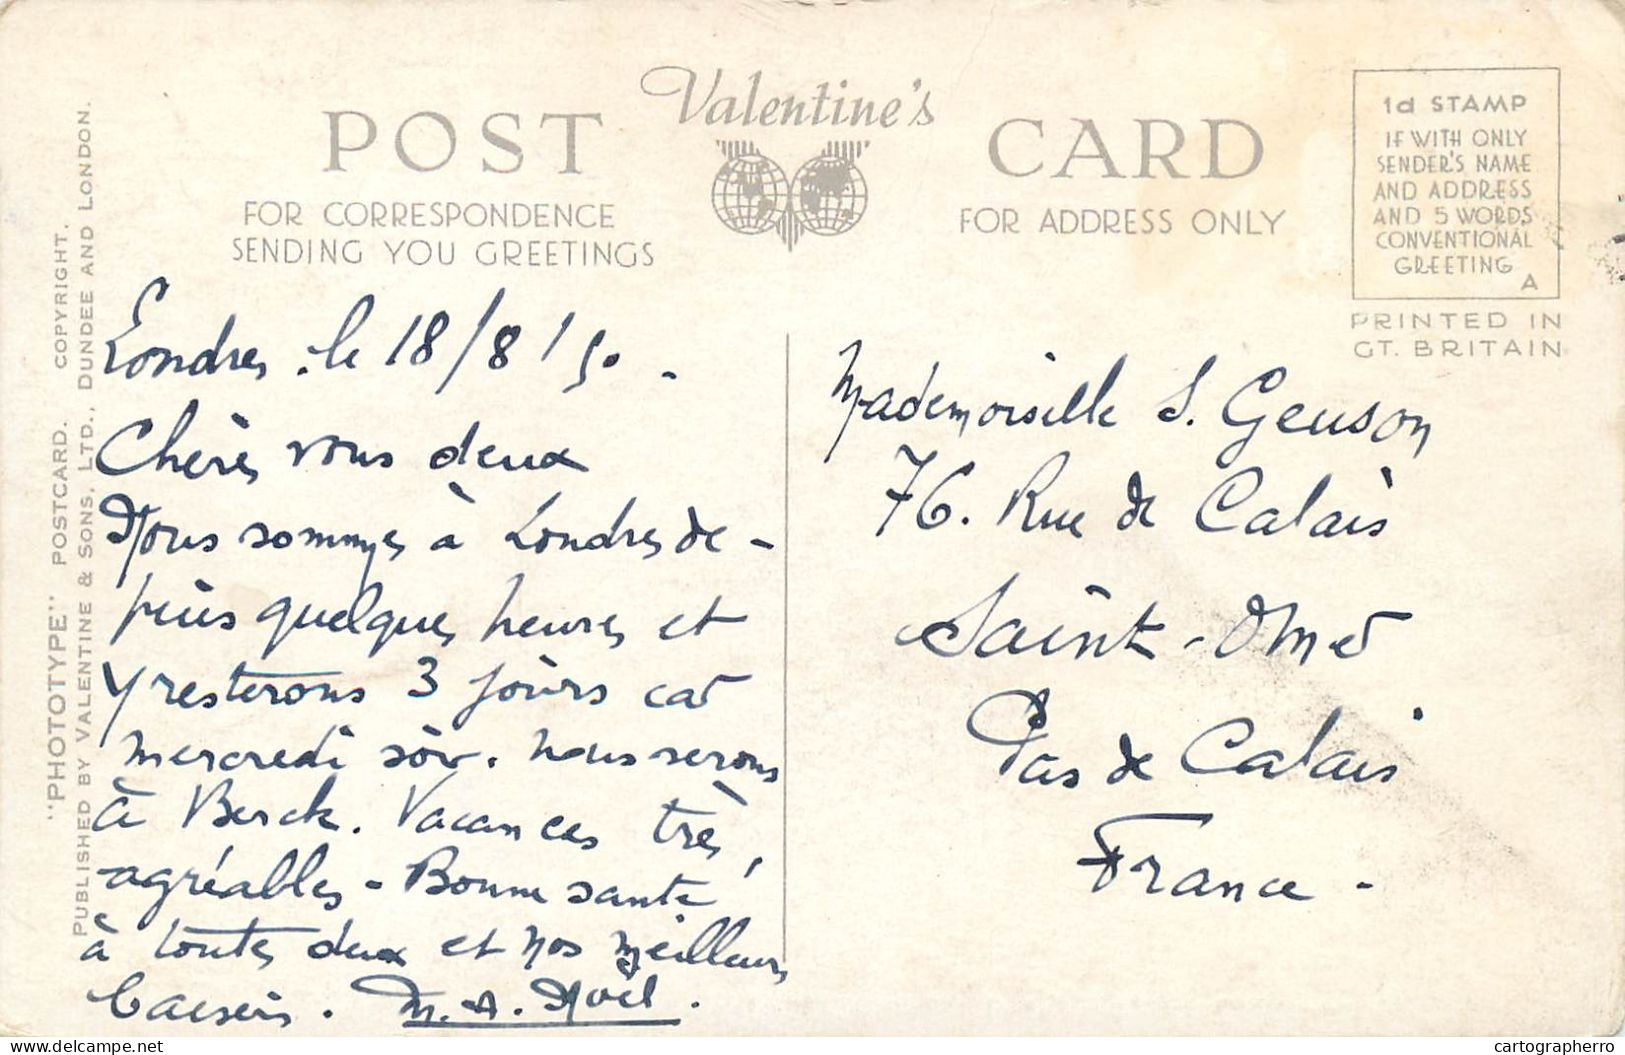 Valentine's
POST CARD
FOR CORRESPONDENCE
SENDING YOU GREETINGS
FOR ADDRESS ONLY
1d STAMP
IF WITH ONLY
SENDER'S NAME
AND ADDRESS
AND 5 WORDS
CONVENTIONAL
GREETING
A
PRINTED IN
GT. BRITAIN
"PHOTOTYPE" POSTCARD. COPYRIGHT.
PUBLISHED BY VALENTINE & SONS, LTD., DUNDEE AND LONDON.
Londres. le 18/8/50.
Chères vous deux
Nous sommes à Londres de-
puis quelques heures et
y resterons 3 jours car
mercredi soir. nous serons
à Berck. Vacances très
agréables - Bonne santé
à toutes deux et nos meilleurs
baisers. M. A. Noël.
Mademoiselle S. Geuson
76. Rue de Calais
Saint-Omer
Pas de Calais
France -
delcampe.net
cartographerro